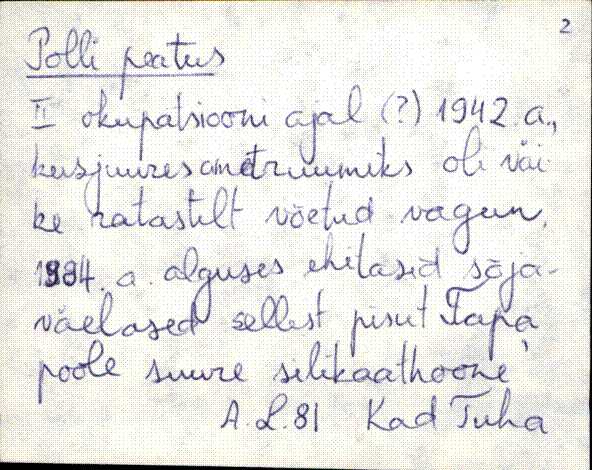 2
Polli peatus
II okupatsiooni ajal (?) 1942. a.,
kusjuures ametruumiks oli väi-
ke ratastelt võetud vagun.
1984. a. alguses ehitasid sõja-
väelased sellest pisut Tapa
poole suure silikaathoone
A.L.81 Kad Tuha